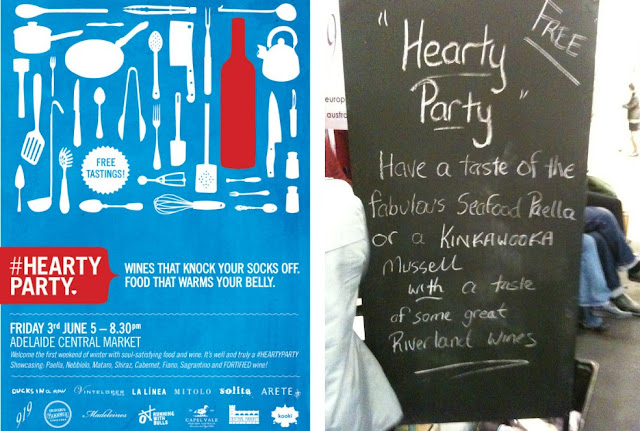 FREE
TASTINGS!
#HEARTY
PARTY.
WINES THAT KNOCK YOUR SOCKS OFF.
FOOD THAT WARMS YOUR BELLY.
FRIDAY 3rd JUNE 5 – 8.30pm
ADELAIDE CENTRAL MARKET
Welcome the first weekend of winter with soul-satisfying food and wine. It's well and truly a #HEARTYPARTY
Showcasing: Paella, Nebbiolo, Mataro, Shiraz, Cabernet, Fiano, Sagrantino and FORTIFIED wine!
DUCKS IN A ROW
VINTELOPER
LA LÍNEA
MITOLO
solita
ARETE
919
Madeleines
RUNNING
WITH
BULLS
CAPEL VALE
kooki
"Hearty
Party"
FREE
europ
austra
Have a taste of the
fabulous Seafood Paella
or a KINKAWOOKA
Mussell
with a taste
of some great
Riverland wines